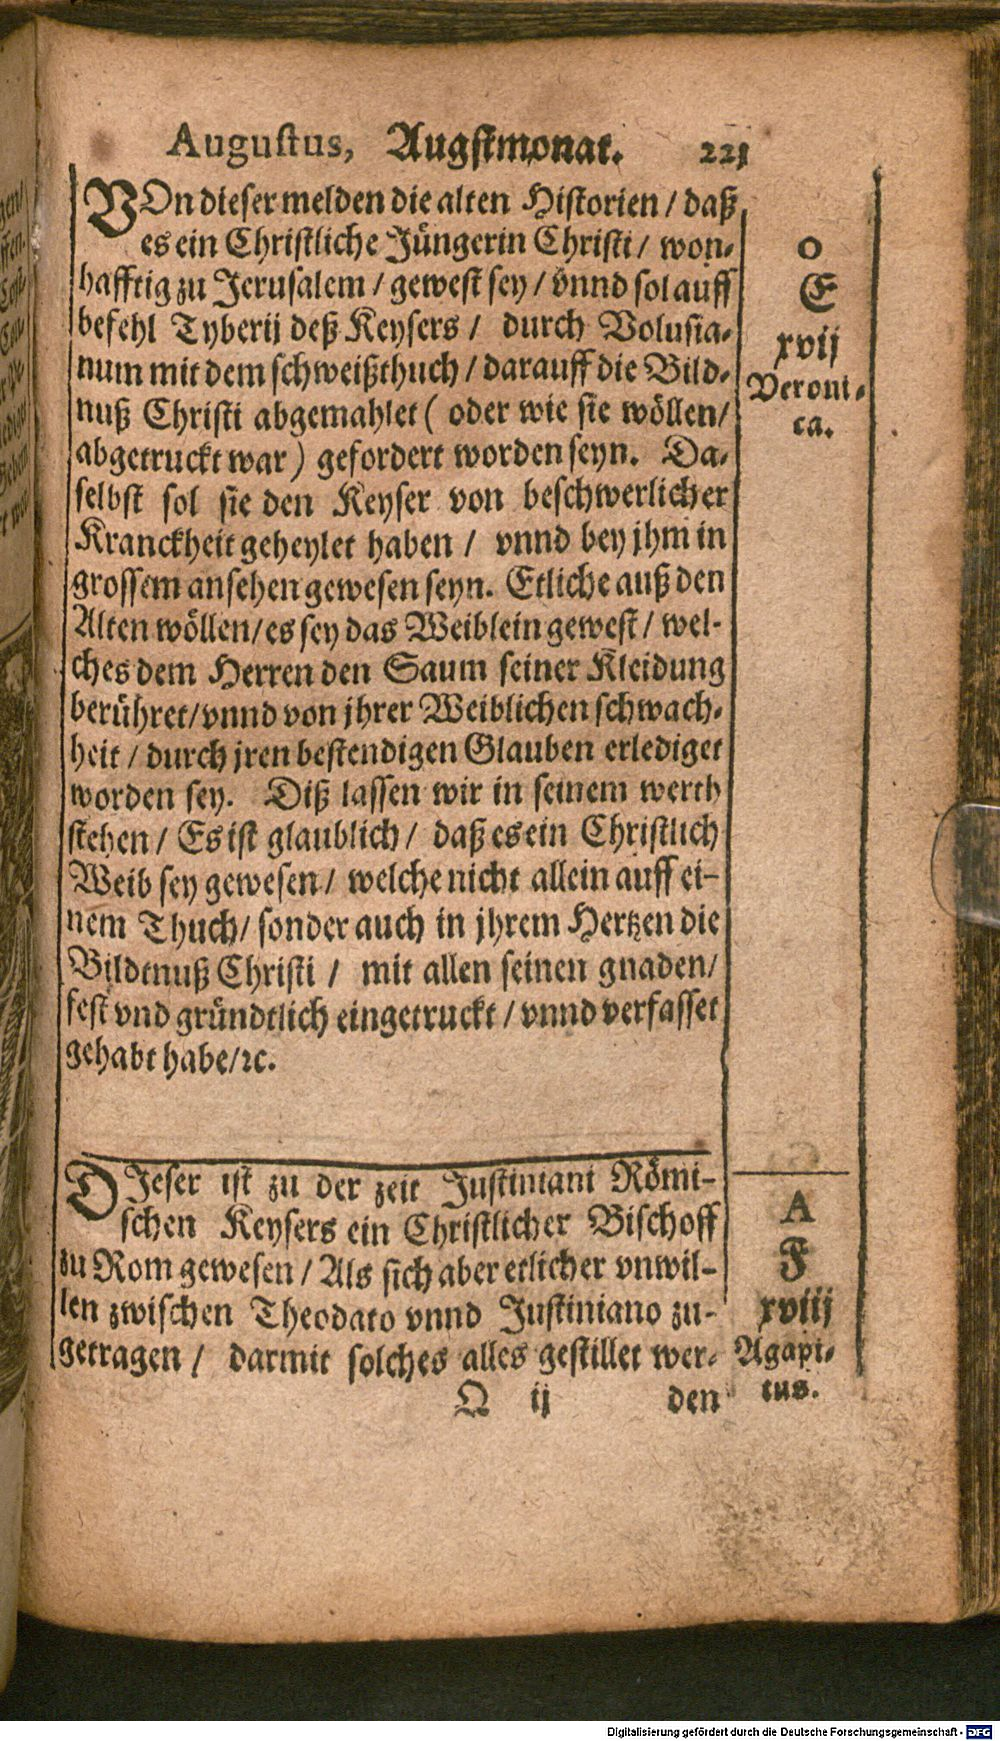 Augustus, Augstmonat. 221
VOn dieser melden die alten Historien / daß
es ein Christliche Jüngerin Christi / won-
hafftig zu Jerusalem / gewest sey / vnnd sol auff
befehl Tyberij deß Keysers / durch Volusia-
num mit dem schweißthuch / darauff die Bild-
nuß Christi abgemahlet ( oder wie sie wöllen /
abgetruckt war ) gefordert worden seyn. Da-
selbst sol sie den Keyser von beschwerlicher
Kranckheit geheylet haben / vnnd bey jhm in
grossem ansehen gewesen seyn. Etliche auß den
Alten wöllen / es sey das Weiblein gewest / wel-
ches dem Herren den Saum seiner Kleidung
berühret / vnnd von jhrer Weiblichen schwach-
heit / durch jren bestendigen Glauben erlediget
worden sey. Diß lassen wir in seinem werth
stehen / Es ist glaublich / daß es ein Christlich
Weib sey gewesen / welche nicht allein auff ei-
nem Thuch / sonder auch in jhrem Hertzen die
Bildtnuß Christi / mit allen seinen gnaden /
fest vnd gründtlich eingetruckt / vnnd verfasset
gehabt habe / ꝛc.
o
E
xvij
Veroni-
ca.
DJeser ist zu der zeit Justiniani Römi-
schen Keysers ein Christlicher Bischoff
zu Rom gewesen / Als sich aber etlicher vnwil-
len zwischen Theodato vnnd Justiniano zu-
getragen / darmit solches alles gestillet wer-
Q ij den
A
F
xviij
Agapi-
tus.
Digitalisierung gefördert durch die Deutsche Forschungsgemeinschaft - DFG